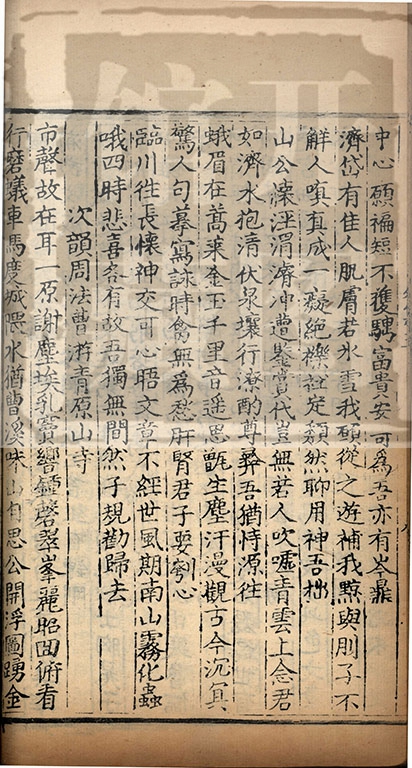 中心願褊短不獲騁富貴安可為吾亦有岑鼎
濟岱有佳人肌膚若氷雪我願從之遊補我黥與刖子不
解人嗔直成一癡絕定頹然聊用神吾拙
山公渭濟冲曹鑒賞代豈無若人吹噓青雲上念君
如濟水抱清伏泉壤行潦酌尊彝吾猶恃源往
蛾眉在蒿萊金玉千里音遥思甑生塵汗漫觀古今沉冥
驚人句摹寫詠時禽無為愁肝腎君子要刳心
臨川往長懷神交可心晤文章不經世風期南山霧化蟲
哦四時悲喜各有故吾獨無間然子規勸歸去
次韻周法曹游青原山寺
市聲故在耳一原謝塵埃乳竇響鐘磬翠峯麗昭回俯看
行磨蟻車馬度城隈水猶曹溪味山自思公開浮圖踴金